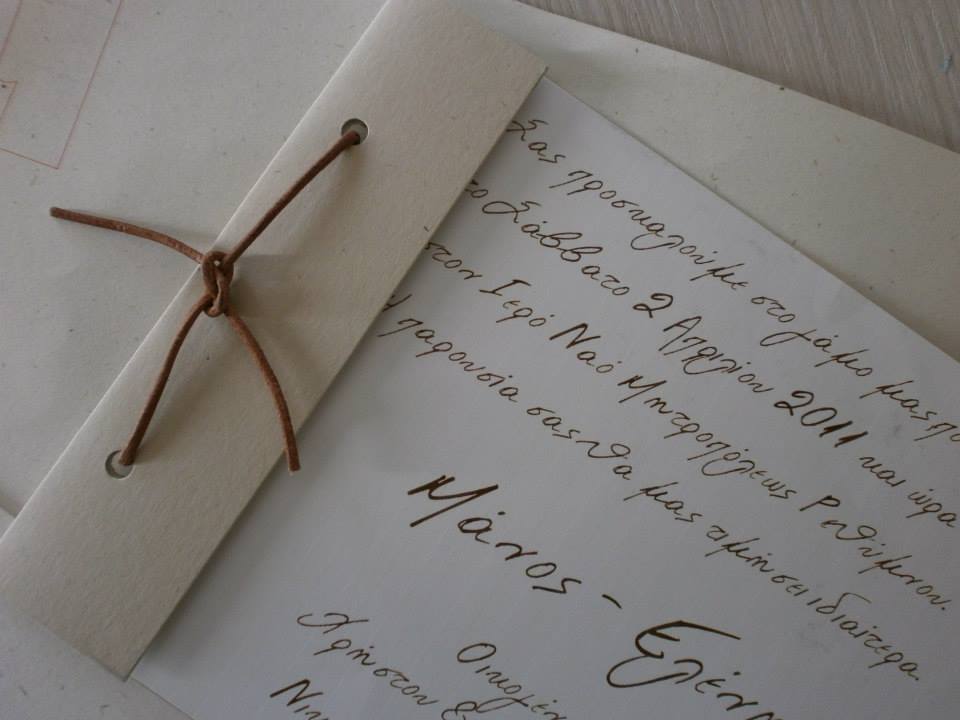 Σας προσκαλούμε στο γάμο μας πο
το Σάββατο 2 Απριλίου 2011 και ώρα
στον Ιερό Ναό Μητροπόλεως Ρεθύμνου.
Η παρουσία σας θα μας τιμήσει ιδιαίτερα.
Μάνος - Ελένη
Οικογέν
Χρήστου